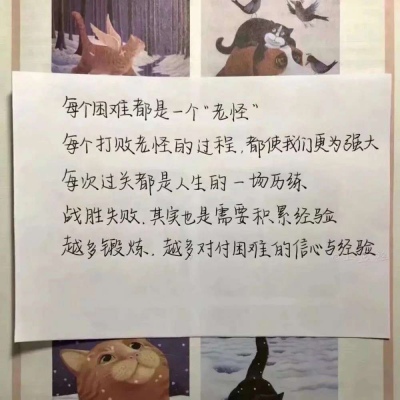 每个困难都是一个“老怪”
每个打败老怪的过程，都使我们更为强大
每次过关都是人生的一场历练
战胜失败，其实也是需要积累经验
越多锻炼，越多对付困难的信心与经验